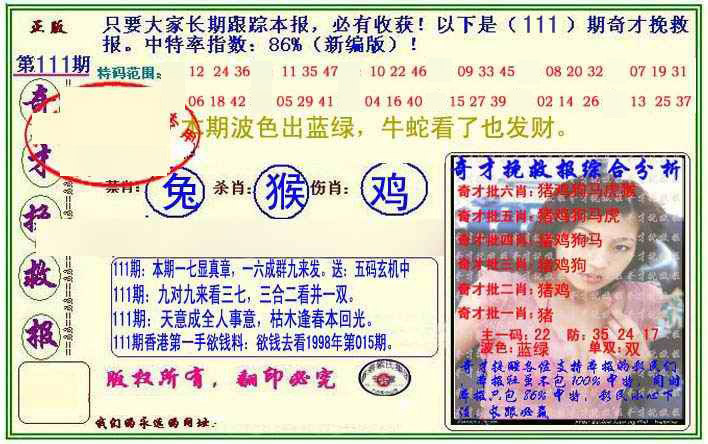 正版
只要大家长期跟踪本报，必有收获！以下是（111）期奇才挽救
报。中特率指数：86%（新编版）！
第111期
特码范围：
12 24 36 11 35 47 10 22 46 09 33 45 08 20 32 07 19 31
06 18 42 05 29 41 04 16 40 15 27 39 02 14 26 13 25 37
奇
才
救
报
本期波色出蓝绿，牛蛇看了也发财。
禁肖：兔 杀肖：猴 伤肖：鸡
111期：本期一七显真章，一六成群九来发。送：五码玄机中
111期：九对九来看三七，三合二看并一双。
111期：天意成全人事意，枯木逢春本回光。
111期香港第一手欲钱料：欲钱去看1998年第015期。
版权所有，翻印必究
我们的永远的网址：
奇才挽救报综合分析
奇才批六肖：猪鸡狗马虎猴
奇才批五肖：猪鸡狗马虎
奇才批四肖：猪鸡狗马
奇才批三肖：猪鸡狗
奇才批二肖：猪鸡
奇才批一肖：猪
主一码：22 防：35 24 17
波色：蓝绿 单双：双
奇才挽救各位支持本报的彩民们
本报社虽不包100%中特，同时
本报只包86%中特，彩民小心下
注，长跟必赢